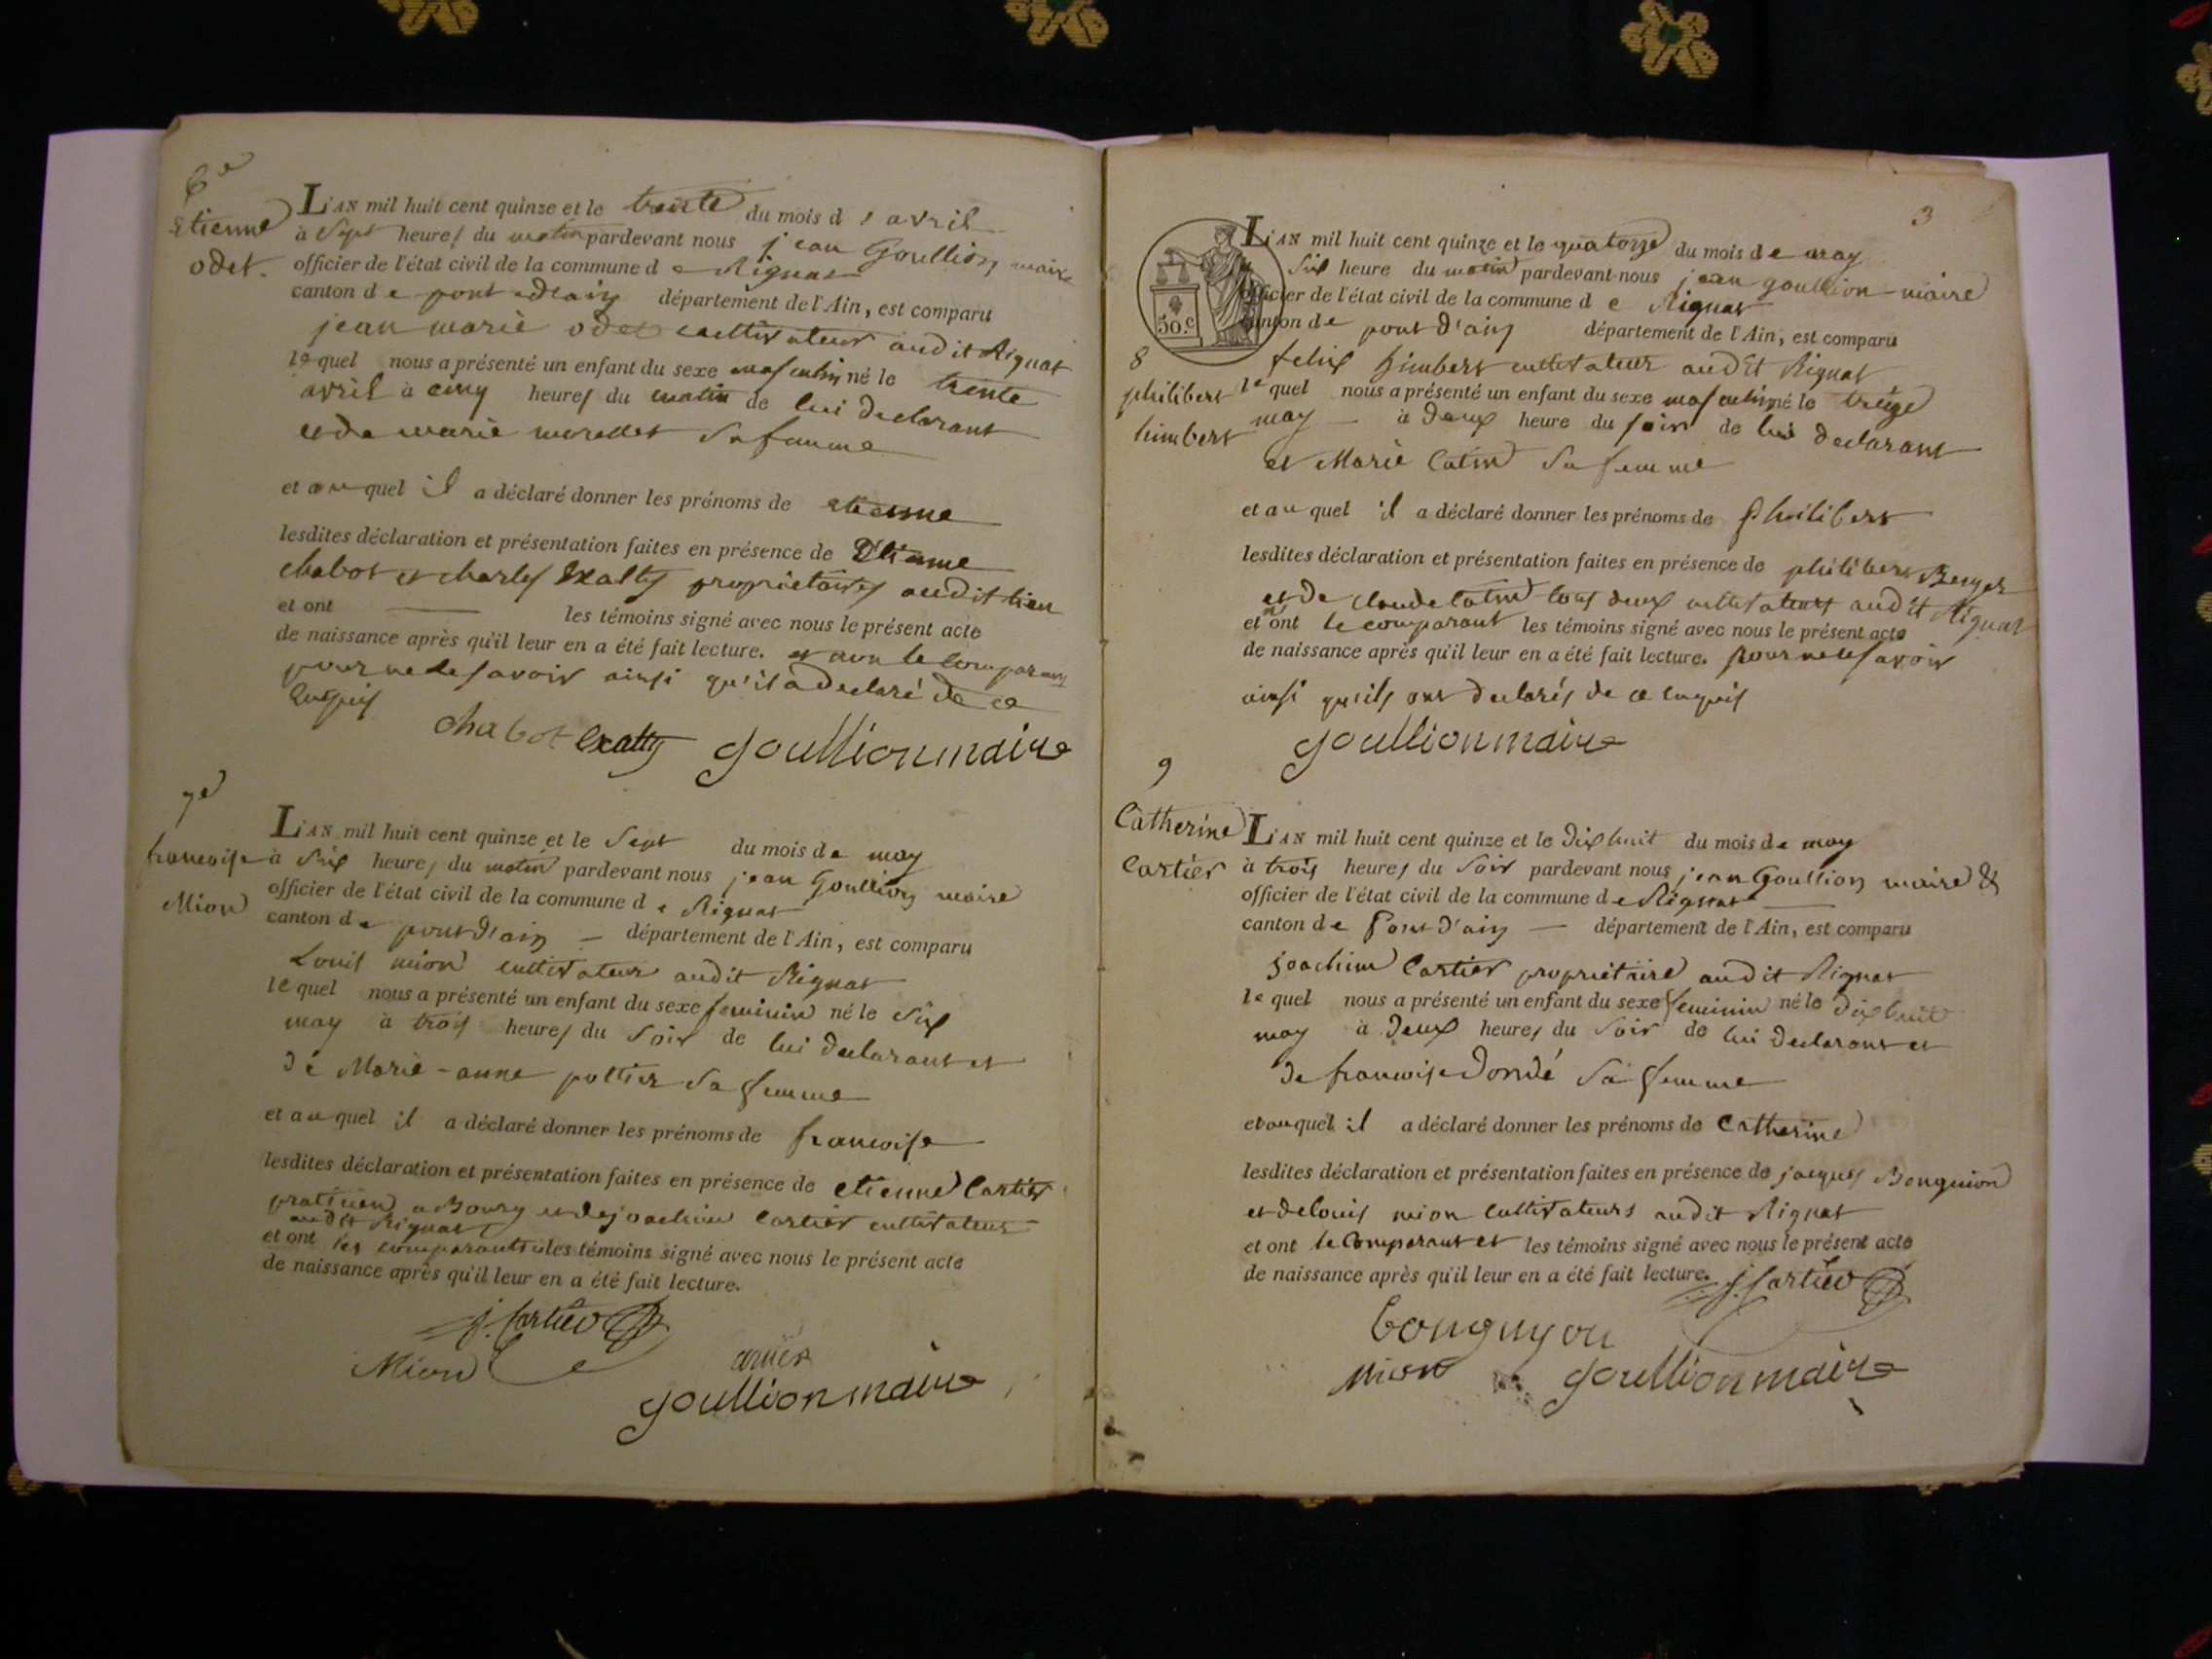 6e
Etienne
odet.
L'AN mil huit cent quinze et le trente du mois d'avril
à Sept heures du matin pardevant nous jean Goullion maire
officier de l'état civil de la commune de Rignat
canton de pont d'ain département de l'Ain, est comparu
jean marie odet cultivateur audit Rignat
lequel nous a présenté un enfant du sexe masculin né le trente
avril à cinq heures du matin de lui declarant
et de marie morellet Sa femme
et auquel il a déclaré donner les prénoms de etienne
lesdites déclaration et présentation faites en présence de Etienne
chabot et charles propriétaires audit lieu
et ont les témoins signé avec nous le présent acte
de naissance après qu'il leur en a été fait lecture. et non le comparant
pour ne le savoir ainsi qu'il a declaré de ce
enquis
chabot goullion maire
7e
francoise
Mion
L'AN mil huit cent quinze et le Sept du mois de may
à Six heures du matin pardevant nous jean Goullion maire
officier de l'état civil de la commune de Rignat
canton de pont d'ain département de l'Ain, est comparu
Louis mion cultivateur audit Rignat
lequel nous a présenté un enfant du sexe feminin né le Six
may à trois heures du Soir de lui declarant et
de Marie-anne pottier Sa femme
et auquel il a déclaré donner les prénoms de francoise
lesdites déclaration et présentation faites en présence de etienne Cartier
praticien a Bourg et de joachim Cartier cultivateur
audit Rignat
et ont les comparants et les témoins signé avec nous le présent acte
de naissance après qu'il leur en a été fait lecture.
j. Cartier
Mion
goullion maire
3
50.c
8
philibert
himbert
L'AN mil huit cent quinze et le quatorze du mois de may
Six heure du matin pardevant nous jean goullion maire
officier de l'état civil de la commune de Rignat
canton de pont d'ain département de l'Ain, est comparu
felix himbert cultivateur audit Rignat
lequel nous a présenté un enfant du sexe masculin né le treize
may à deux heure du soir de lui declarant
et Marie Catin Sa femme
et auquel il a déclaré donner les prénoms de philibert
lesdites déclaration et présentation faites en présence de philibert Berger
et de claude Catin tous deux cultivateurs audit Rignat
et n'ont le comparant les témoins signé avec nous le présent acte
de naissance après qu'il leur en a été fait lecture. pour ne le savoir
ainsi qu'ils ont declarés de ce enquis
goullion maire
9
Catherine
Cartier
L'AN mil huit cent quinze et le dix huit du mois de may
à trois heures du Soir pardevant nous jean Goullion maire &
officier de l'état civil de la commune de Rignat
canton de Pont d'ain département de l'Ain, est comparu
joachim Cartier propriétaire audit Rignat
lequel nous a présenté un enfant du sexe feminin né le dix huit
may à deux heures du Soir de lui declarant et
de francoise dondé Sa femme
et auquel il a déclaré donner les prénoms de Catherine
lesdites déclaration et présentation faites en présence de jacques Bonguion
et de louis mion cultivateurs audit Rignat
et ont le Comparant et les témoins signé avec nous le présent acte
de naissance après qu'il leur en a été fait lecture. j. Cartier
bonguyon
mion goullion maire